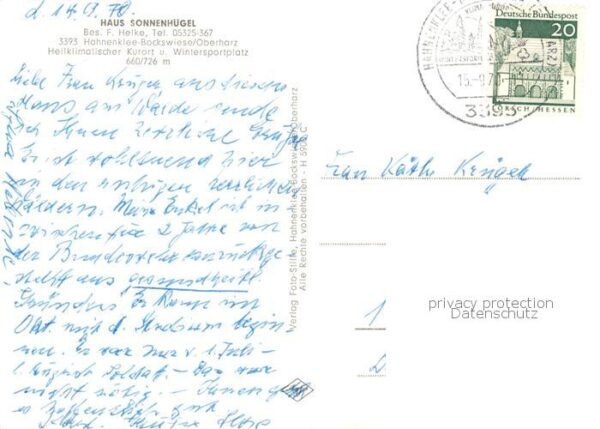 d. 14.9.70.
HAUS SONNENHÜGEL
Bes. F. Helke, Tel. 05325-367
3393 Hahnenklee-Bockswiese/Oberharz
Heilklimatischer Kurort u. Wintersportplatz
660/726 m
Liebe Frau Krügel, aus diesem
Haus am Walde sende
ich Ihnen herzliche Grüße
Es ist wohltuend hier
in den ruhigen herrlichen
Wäldern. Mein Enkel ist in
zwischen für 2 Jahre von
der Bundeswehr zurückge
stellt aus gesundheitl.
Gründen. Er kann im
Okt. mit d. Studium begin
nen. Er war nur v. 1. Juli -
1. August Soldat. - Das war
nicht nötig. - Ihnen
Verlag Foto-Stille, Hahnenklee-Bockswiese/Oberharz
Alle Rechte vorbehalten - H 5900 C
Deutsche Bundespost
20
LORSCH/HESSEN
HAHNENKLEE-
HARZ
15.-9.70
3393
Frau Käthe Krügel
1
2
privacy protection
Datenschutz